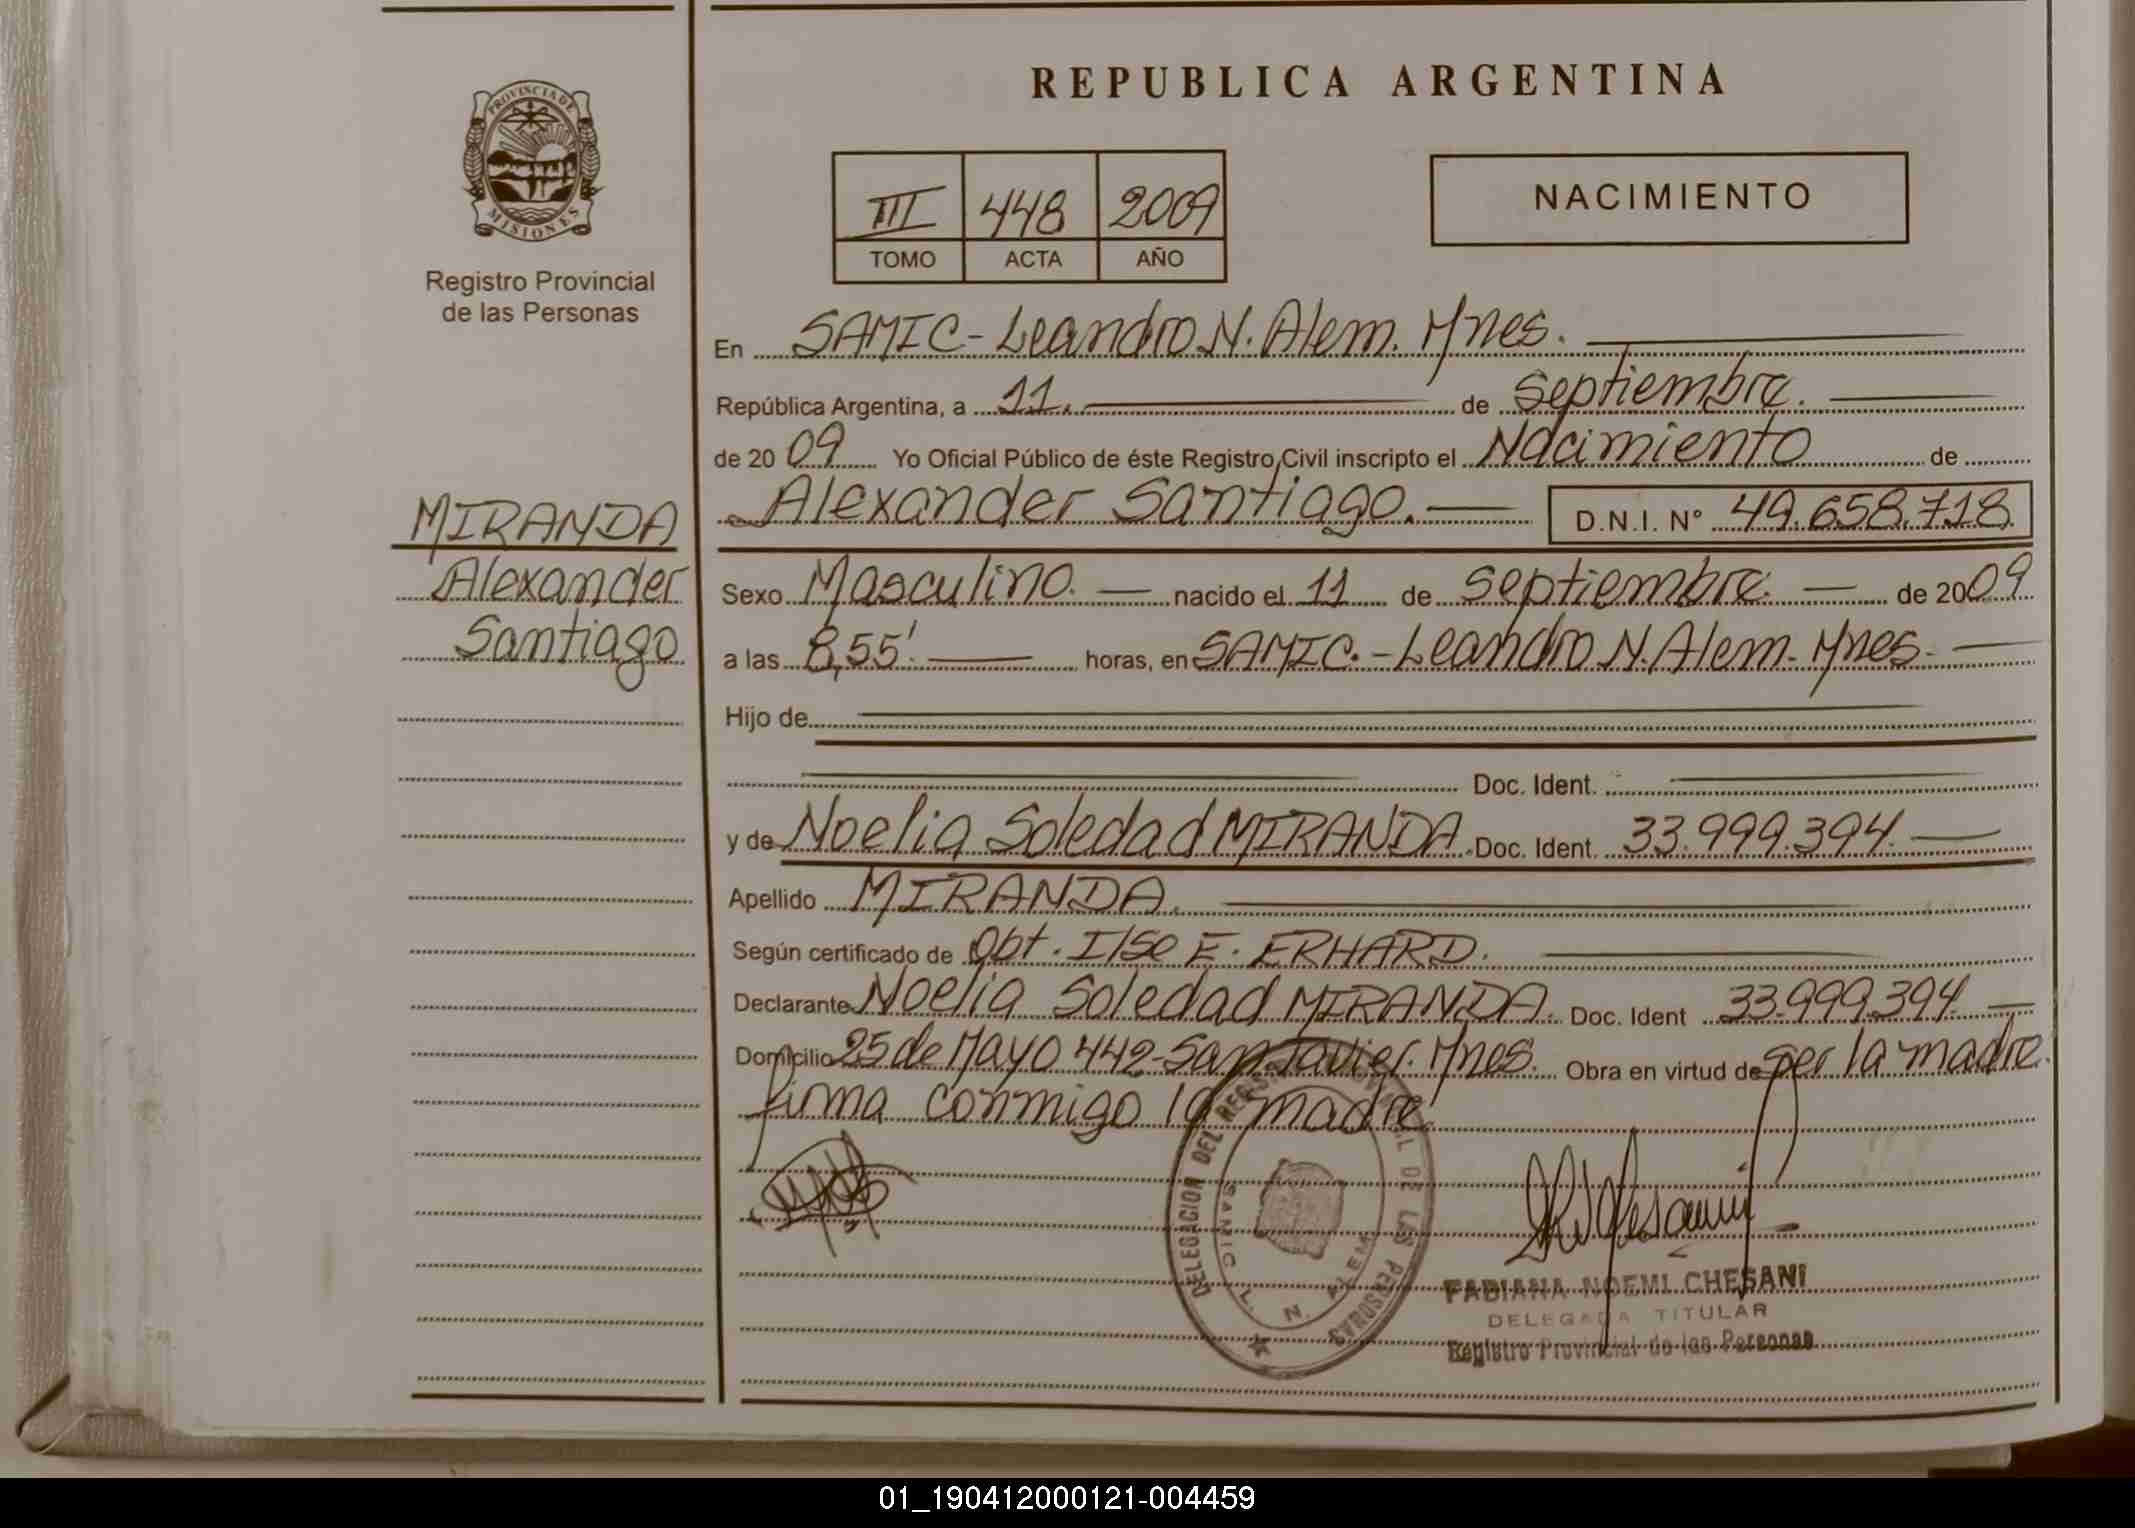 REPUBLICA ARGENTINA
PROVINCIA DE
MISIONES
Registro Provincial
de las Personas
III 448 2009
TOMO ACTA AÑO
NACIMIENTO
En SAMIC-Leandro N. Alem. Mnes.
República Argentina, a 11. de septiembre.
de 2009 Yo Oficial Público de éste Registro Civil inscripto el Nacimiento de
Alexander Santiago. D.N.I. N° 49.658.718
MIRANDA
Alexander
Santiago
Sexo Masculino. nacido el 11 de septiembre. de 2009
a las 8,55' horas, en SAMIC.-Leandro N. Alem. Mnes.
Hijo de
Doc. Ident.
y de Noelia Soledad MIRANDA. Doc. Ident. 33.999.394.
Apellido MIRANDA.
Según certificado de Obt. Ilse E. ERHARD.
Declarante Noelia Soledad MIRANDA. Doc. Ident 33.999.394.
Domicilio 25 de Mayo 442-San Javier. Mnes. Obra en virtud de ser la madre.
firma conmigo la madre.
DELEGACION DEL REGISTRO PROVINCIAL DE LAS PERSONAS
SAMIC L. N. ALEM
FABIANA NOEMI CHESANI
DELEGADA TITULAR
Registro Provincial de las Personas
01_190412000121-004459